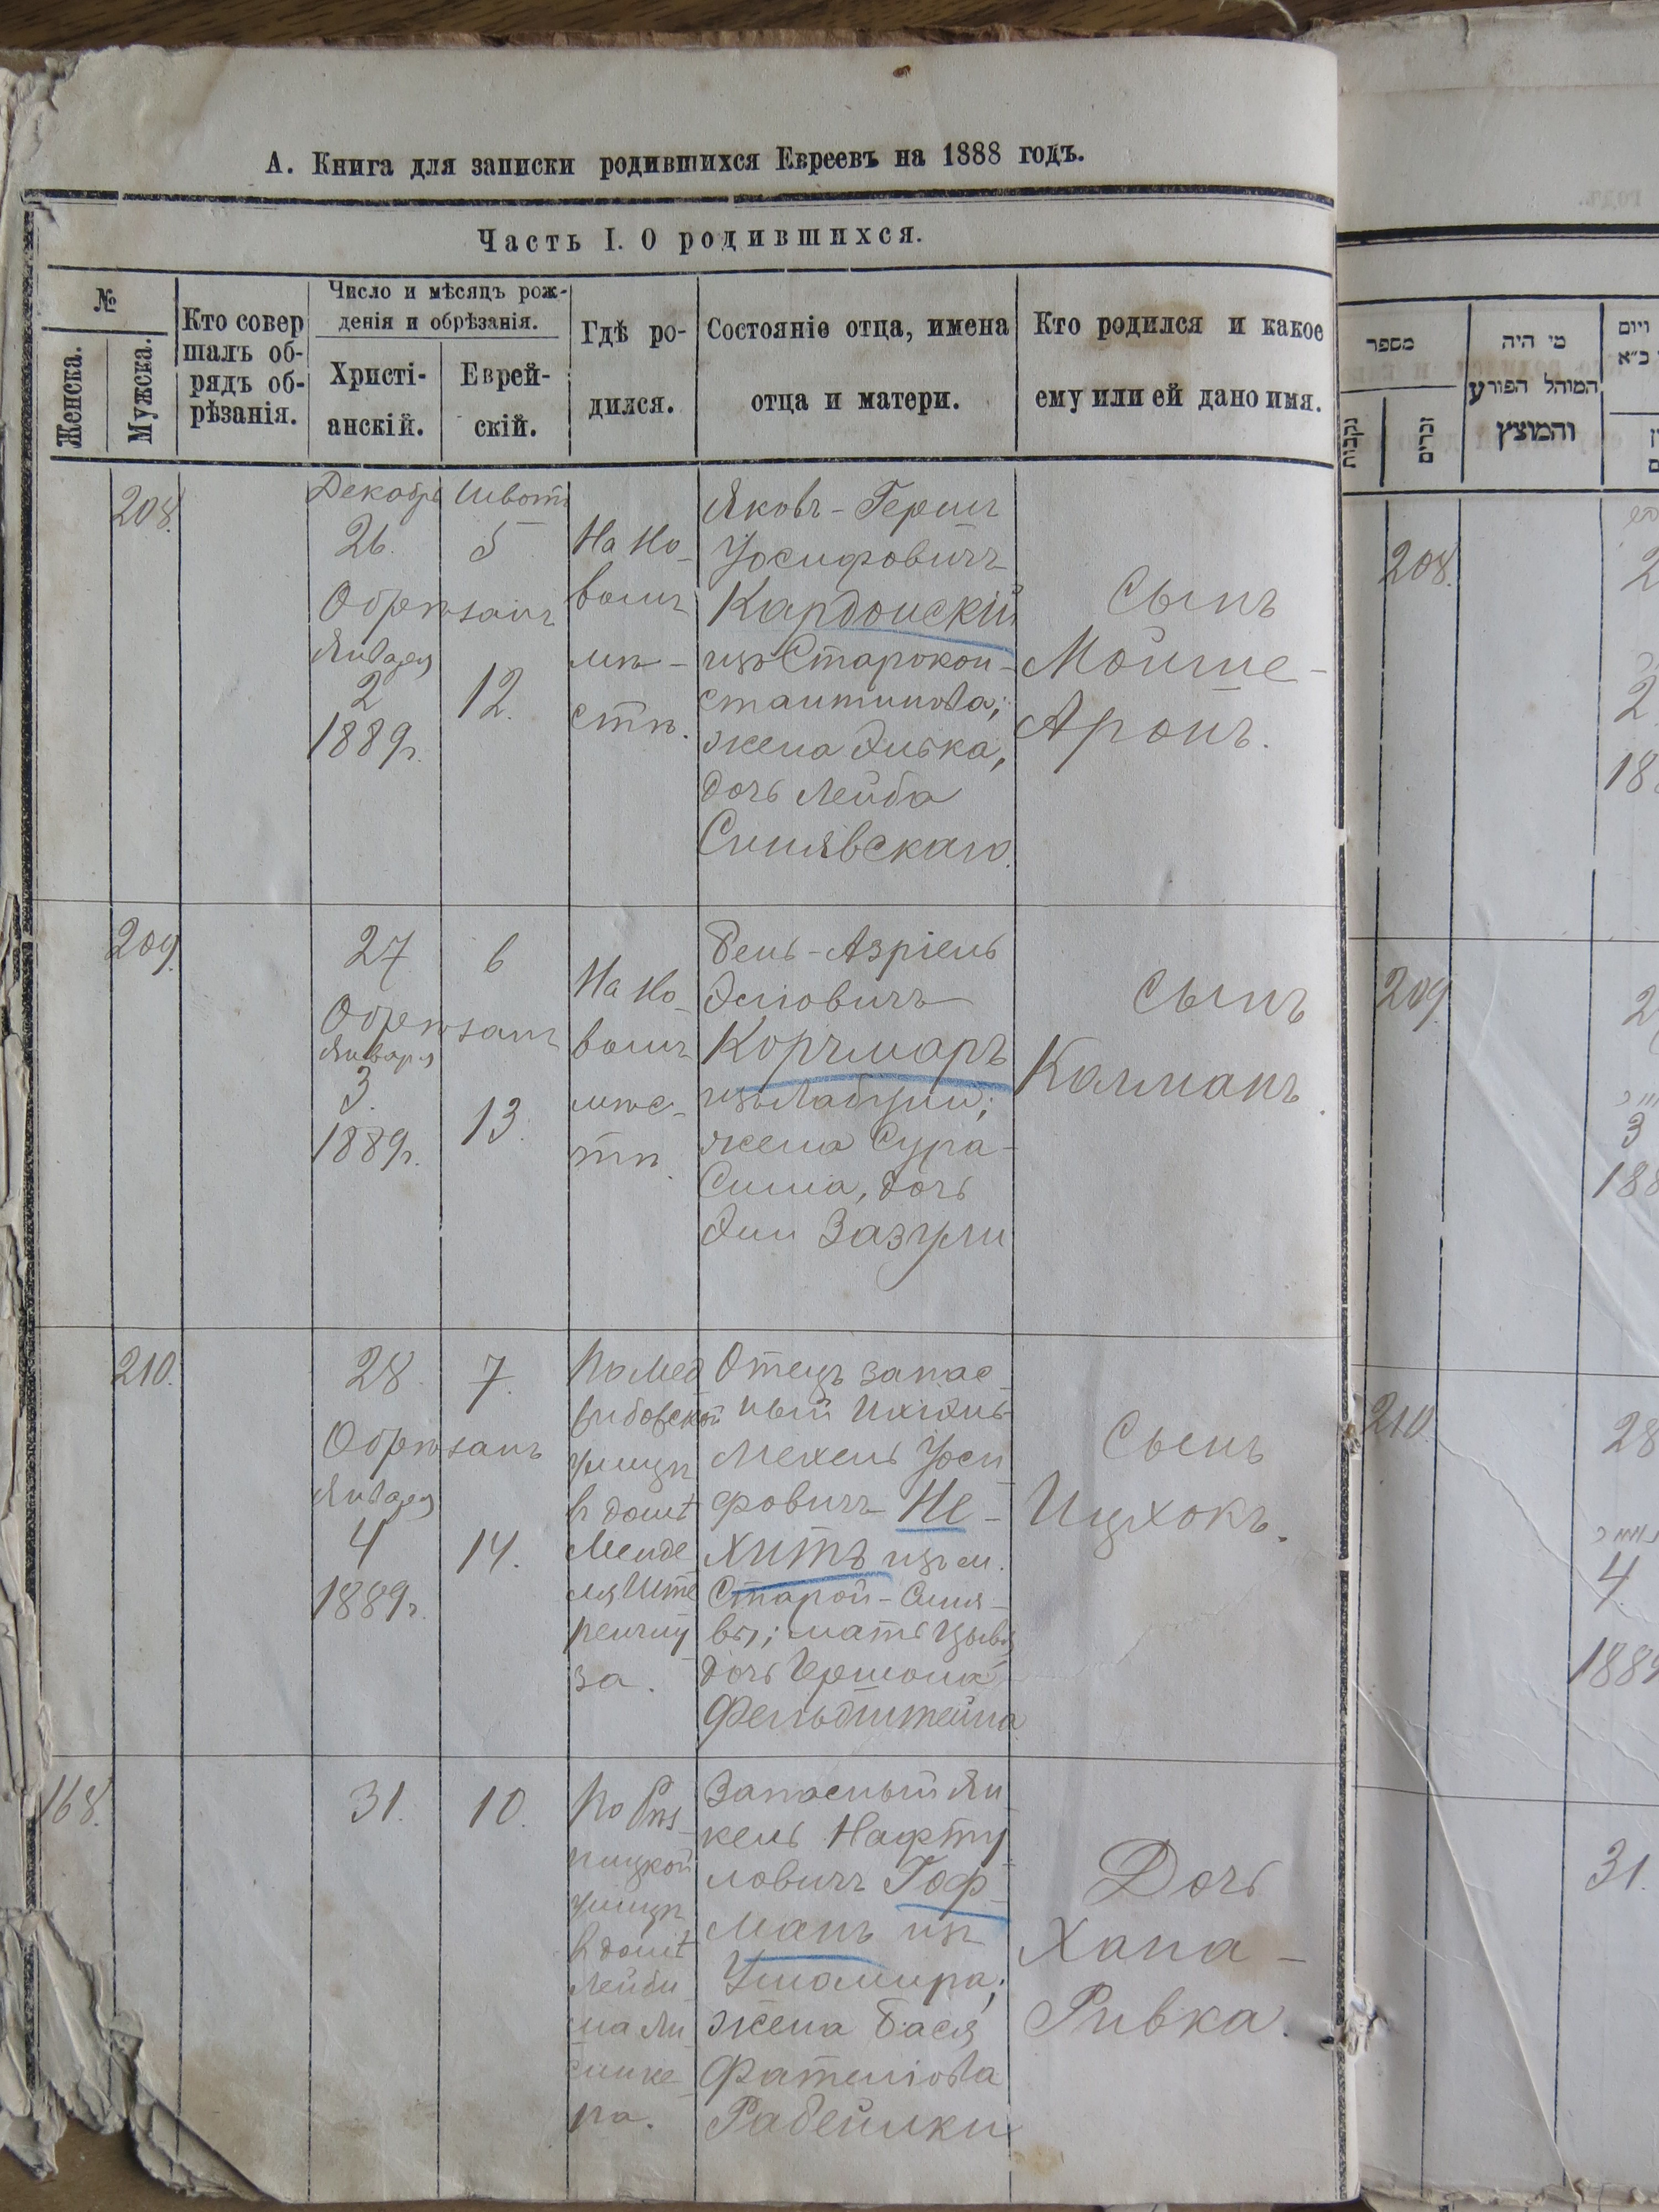 А. Книга для записки родившихся Евреевъ на 1888 годъ.
Часть I. О родившихся.
№
Женска.
Мужска.
Кто совер
шалъ об-
рядъ об-
рѣзанія.
Число и мѣсяцъ рож-
денія и обрѣзанія.
Христі-
анскій.
Еврей-
скій.
Гдѣ ро-
дился.
Состояніе отца, имена
отца и матери.
Кто родился и какое
ему или ей дано имя.
208.
Декабрь
26.
Обрѣзанъ
Января
2
1889г.
Шватъ
5
12.
На Но-
вомъ
мѣ-
стѣ.
Яковъ-Гершъ
Іосифовичъ
Кардонскій
изъ Старокон-
стантинова;
жена Элька,
дочь Лейба
Синявскаго.
Сынъ
Мойше-
Аронъ.
209.
27
Обрѣзанъ
Января
3.
1889г.
6
13.
На Но-
вомъ
мѣс-
тѣ.
Бень-Азріель
Эліовичъ
Корчмаръ
изъ Лабуни;
жена Сура-
Сима, дочь
Эли Зазули
Сынъ
Калманъ.
210.
28.
Обрѣзанъ
Января
4
1889г.
7.
14.
По Мед
вѣдовской
улицѣ
в домѣ
Менде
ля Ште
ренгау
за.
Отецъ запас-
ный
Мехель Іоси
фовичъ Не-
хитъ изъ м.
Старой-Синя-
вы; мать Цывя
дочь Гершона
Фельдштейна
Сынъ
Ицхокъ.
168.
31.
10.
По Рѣз-
ницкой
улицѣ
в домѣ
Запасный Ян
кель Нафту
ловичъ Гоф-
манъ изъ
Уломира;
жена Бася
Радейчки
Дочь
Хана-
Ривка.
מספר
נקבות
זכרים
מי היה
המוהל הפורע
והמוצץ
ויום
כ״א
208.
209
210.
2
3
188
28
4.
1889
31.